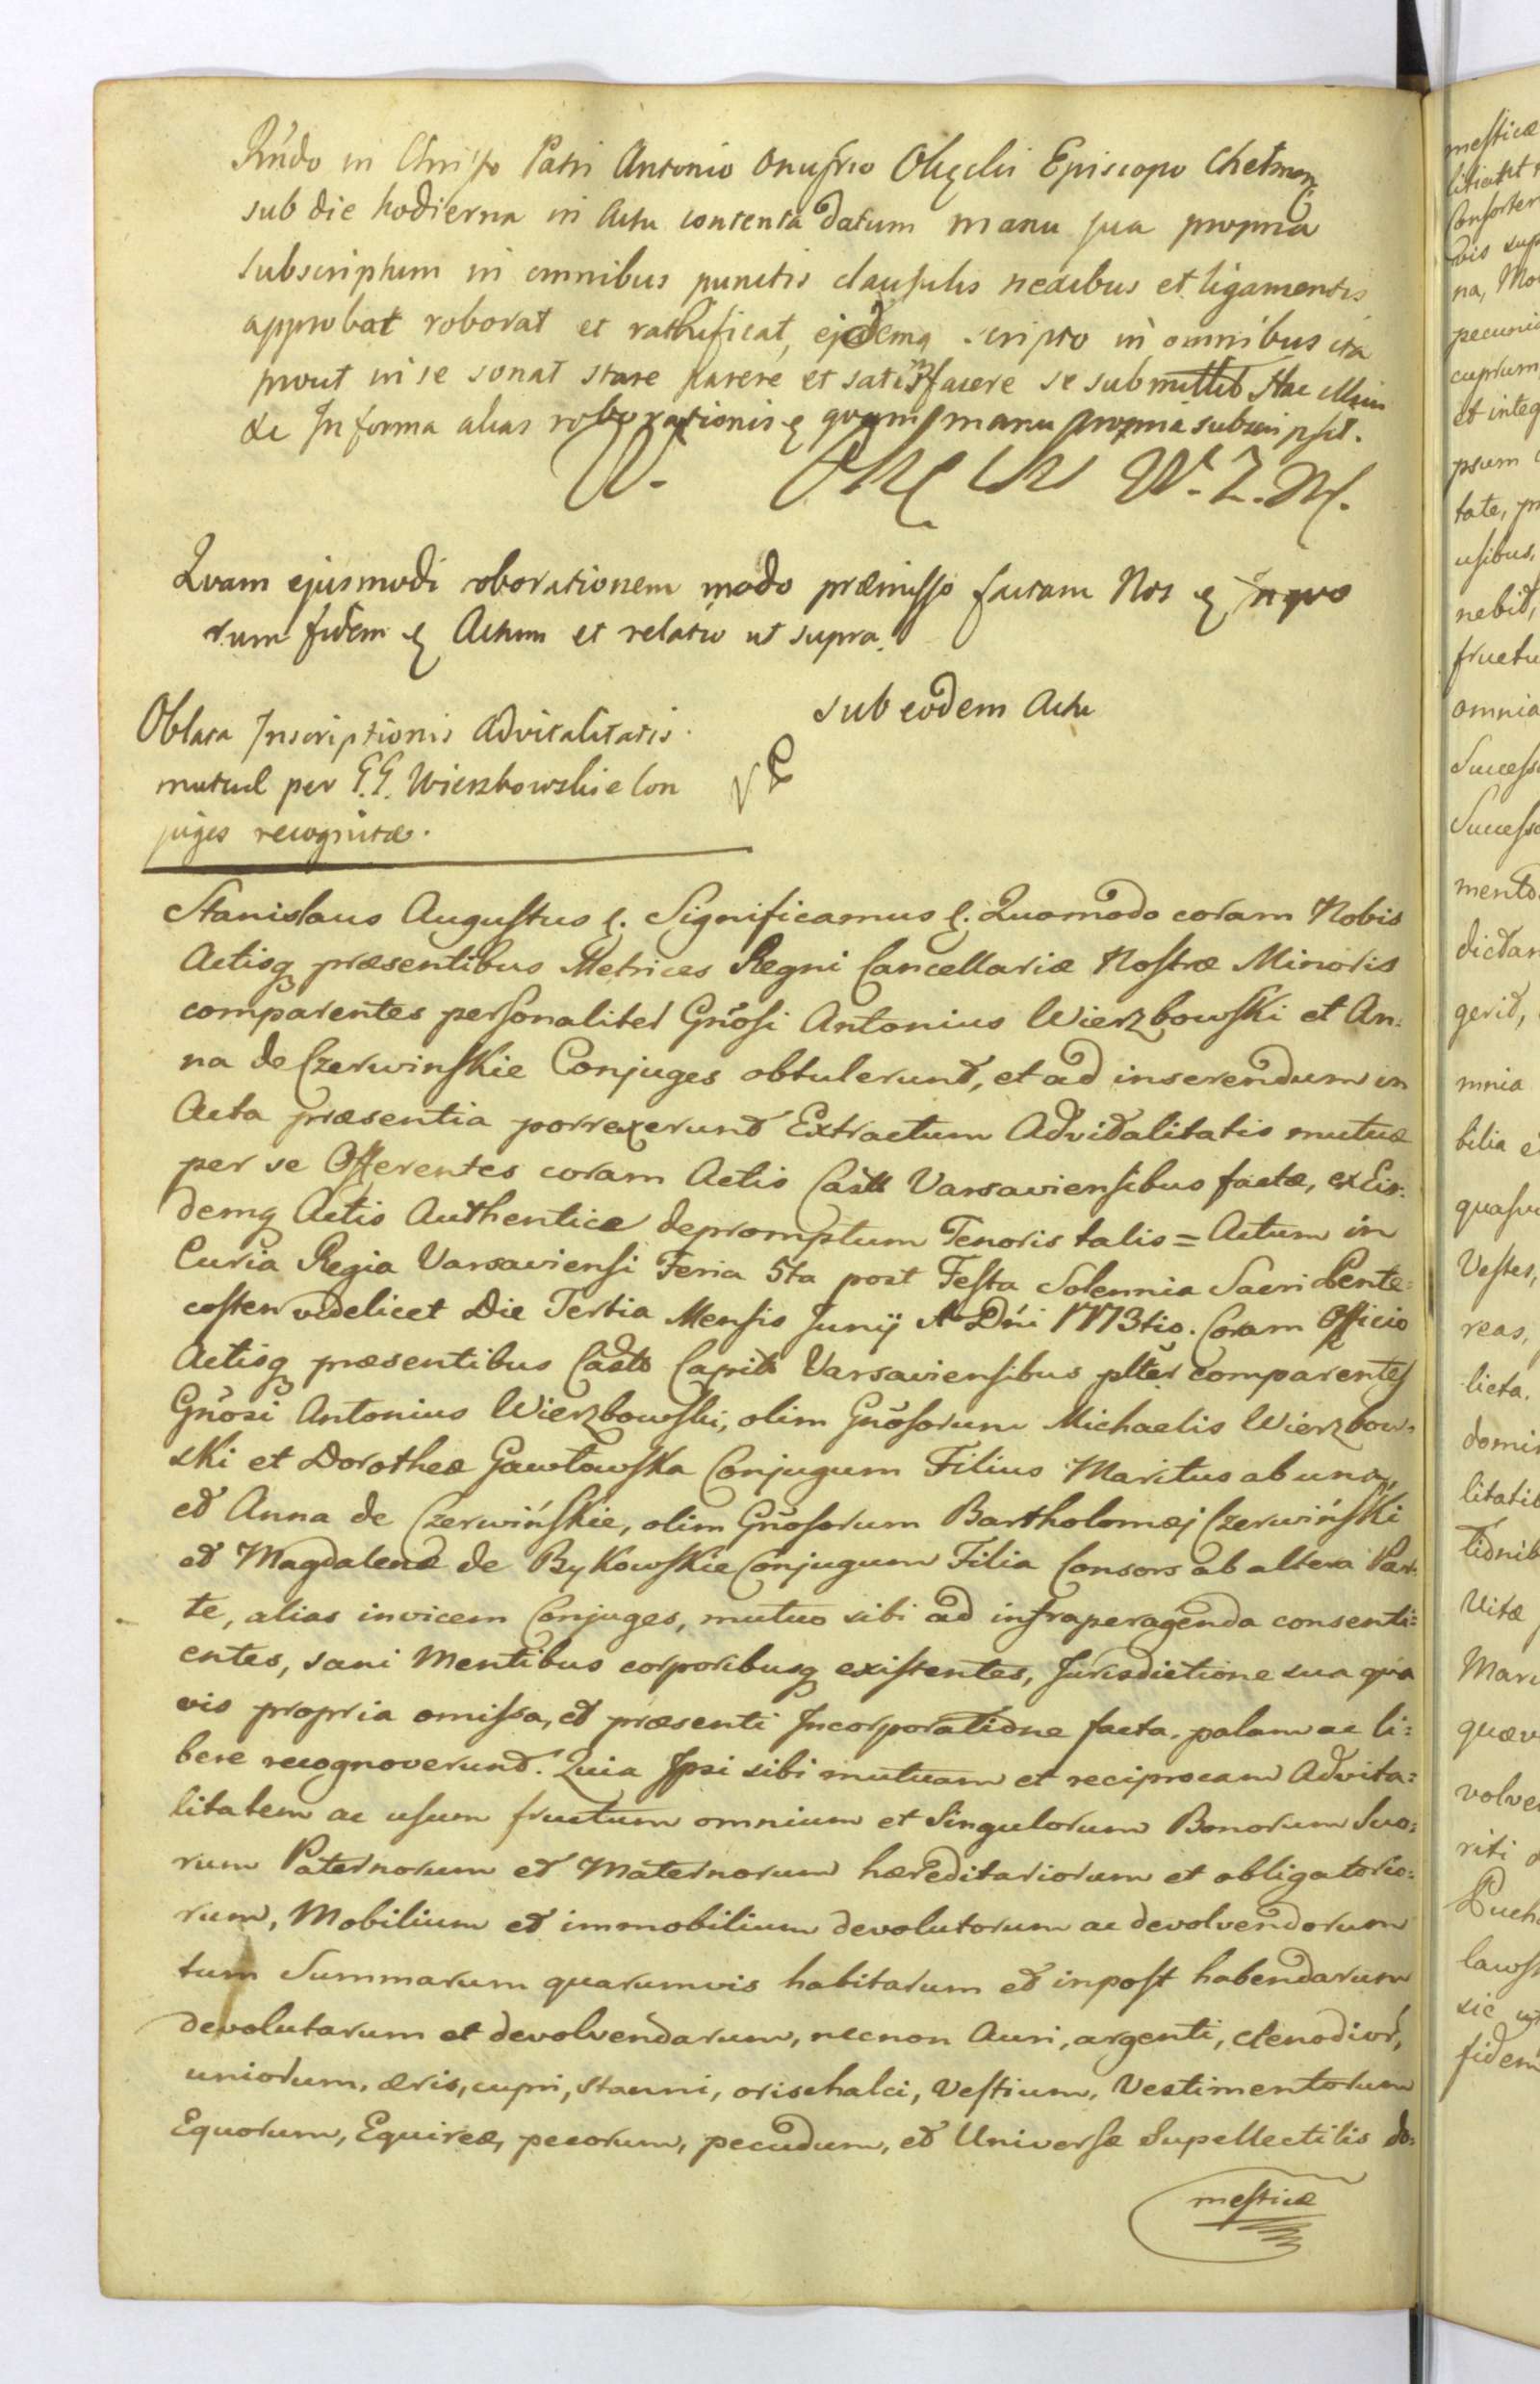 Rńdo in Christo Patri Antonio Onufrio Okęcki Episcopo Chełmen
sub die hodierna in Actu contenta datum manu sua propria
subscriptum in omnibus punctis clausulis nexibus et ligamentis
approbat roborat et rathificat, ejdemq scripto in omnibus ita
prout in se sonat stare parere et satisfacere se submittit Hac
In forma alias roborationis manu propria subscripsit.
W. Okęcki W. Z. M.
Quam ejusmodi roborationem modo præmisso factam Nos In quo
rum fidem Actum et relatio ut supra.
sub eodem Actu
Oblata Inscriptionis Advitalitatis
mutuæ per G.G. Wierzbowskie Con
juges recognitæ.
Stanislaus Augustus Significamus Quomodo coram Nobis
Actisq præsentibus Metrices Regni Cancellariæ Nostræ Minoris
comparentes personaliter Gnosi Antonius Wierzbowski et An:
na de Czerwinskie Conjuges obtulerunt, et ad inserendum in
Acta præsentia porrexerunt Extractum Advitalitatis mutuæ
per se Offerentes coram Actis Castr Varsaviensibus factæ, ex Eis:
demq Actis Authentice depromptum Tenoris talis = Actum in
Curia Regia Varsaviensi Feria 5ta post Festa Solennia Sacri Pente:
costen videlicet Die Tertia Mensis Junij A Dńi 1773tio. Coram Officio
Actisq præsentibus Castr Capit Varsaviensibus plter comparentes
Gnosi Antonius Wierzbowski, olim Gnosorum Michaelis Wierzbow:
ski et Dorotheæ Gawłowska Conjugum Filius Maritus ab una,
et Anna de Czerwińskie, olim Gnosorum Bartholomæj Czerwiński
et Magdalenæ de Bykowskie Conjugum Filia Consors ab altera Par:
te, alias invicem Conjuges, mutuo sibi ad infraperagenda consenti:
entes, sani Mentibus corporibusq existentes, Jurisdictione sua qua
vis propria omissa, et præsenti Incorporatione facta, palam ac li:
bere recognoverunt. Quia Ipsi sibi mutuam et reciprocam Advita:
litatem ac usum fructum omnium et Singulorum Bonorum Suo:
rum Paternorum et Maternorum hæreditariorum et obligatorio:
rum, Mobilium et immobilium devolutorum ac devolvendorum
tum Summarum quarumvis habitarum et inpost habendarum
devolutarum et devolvendarum, necnon Auri, argenti, clenodior,
uniorum, æris, cupri, stanni, orischalci, Vestium, Vestimentorum
Equorum, Equireæ, pecorum, pecudum, et Universæ Supellectilis do:
mesticæ
mesticæ
Consorter
na, Mo
pecunia
cuprum
et integ
psum
tate, pr
usibus,
nebit,
fructu
omnia
Success
Successo
mento
dictam
gerit,
mnia
bilia e
quasvi
Vestes,
reas,
licta.
domi
litatis
Vitæ
Mari
quæv
volve
riti
sic
fidem